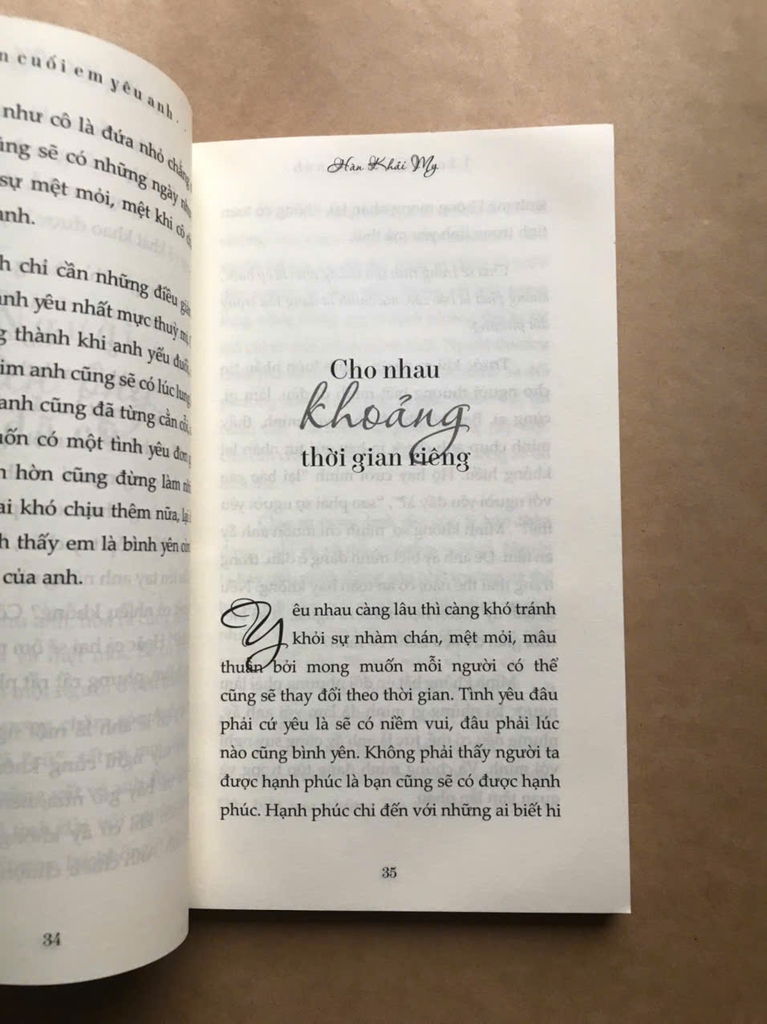 n cuối em yêu anh...
như cô là đứa nhỏ chẳng
ũng sẽ có những ngày
sự mệt mỏi, mệt khi cô
anh.
h chỉ cần những điều
anh yêu nhất mực thuỳ
g thành khi anh yếu đuối,
im anh cũng sẽ có lúc
anh cũng đã từng cằn cỗi,
uốn có một tình yêu đơn
n hờn cũng đừng làm
ai khó chịu thêm nữa, lại
h thấy em là bình yên
của anh.
34
Hàn Khải My
Cho nhau
khoảng
thời gian riêng
Yêu nhau càng lâu thì càng khó tránh
khỏi sự nhàm chán, mệt mỏi, mâu
thuẫn bởi mong muốn mỗi người có thể
cũng sẽ thay đổi theo thời gian. Tình yêu đâu
phải cứ yêu là sẽ có niềm vui, đâu phải lúc
nào cũng bình yên. Không phải thấy người ta
được hạnh phúc là bạn cũng sẽ có được hạnh
phúc. Hạnh phúc chỉ đến với những ai biết hi
35